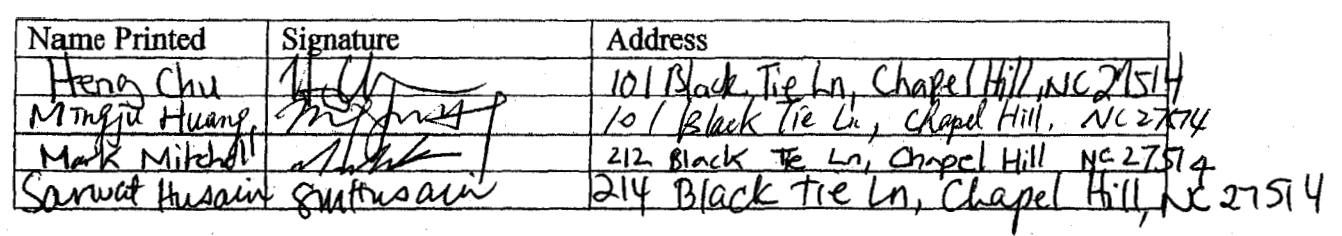 Name Printed Signature Address
Heng Chu 101 Black Tie Ln, Chapel Hill, NC 27514
Mingju Huang 101 Black Tie Ln, Chapel Hill, NC 27514
Mark Mitchell 212 Black Tie Ln, Chapel Hill NC 27514
Sarwat Husain SmHusain 214 Black Tie Ln, Chapel Hill, NC 27514